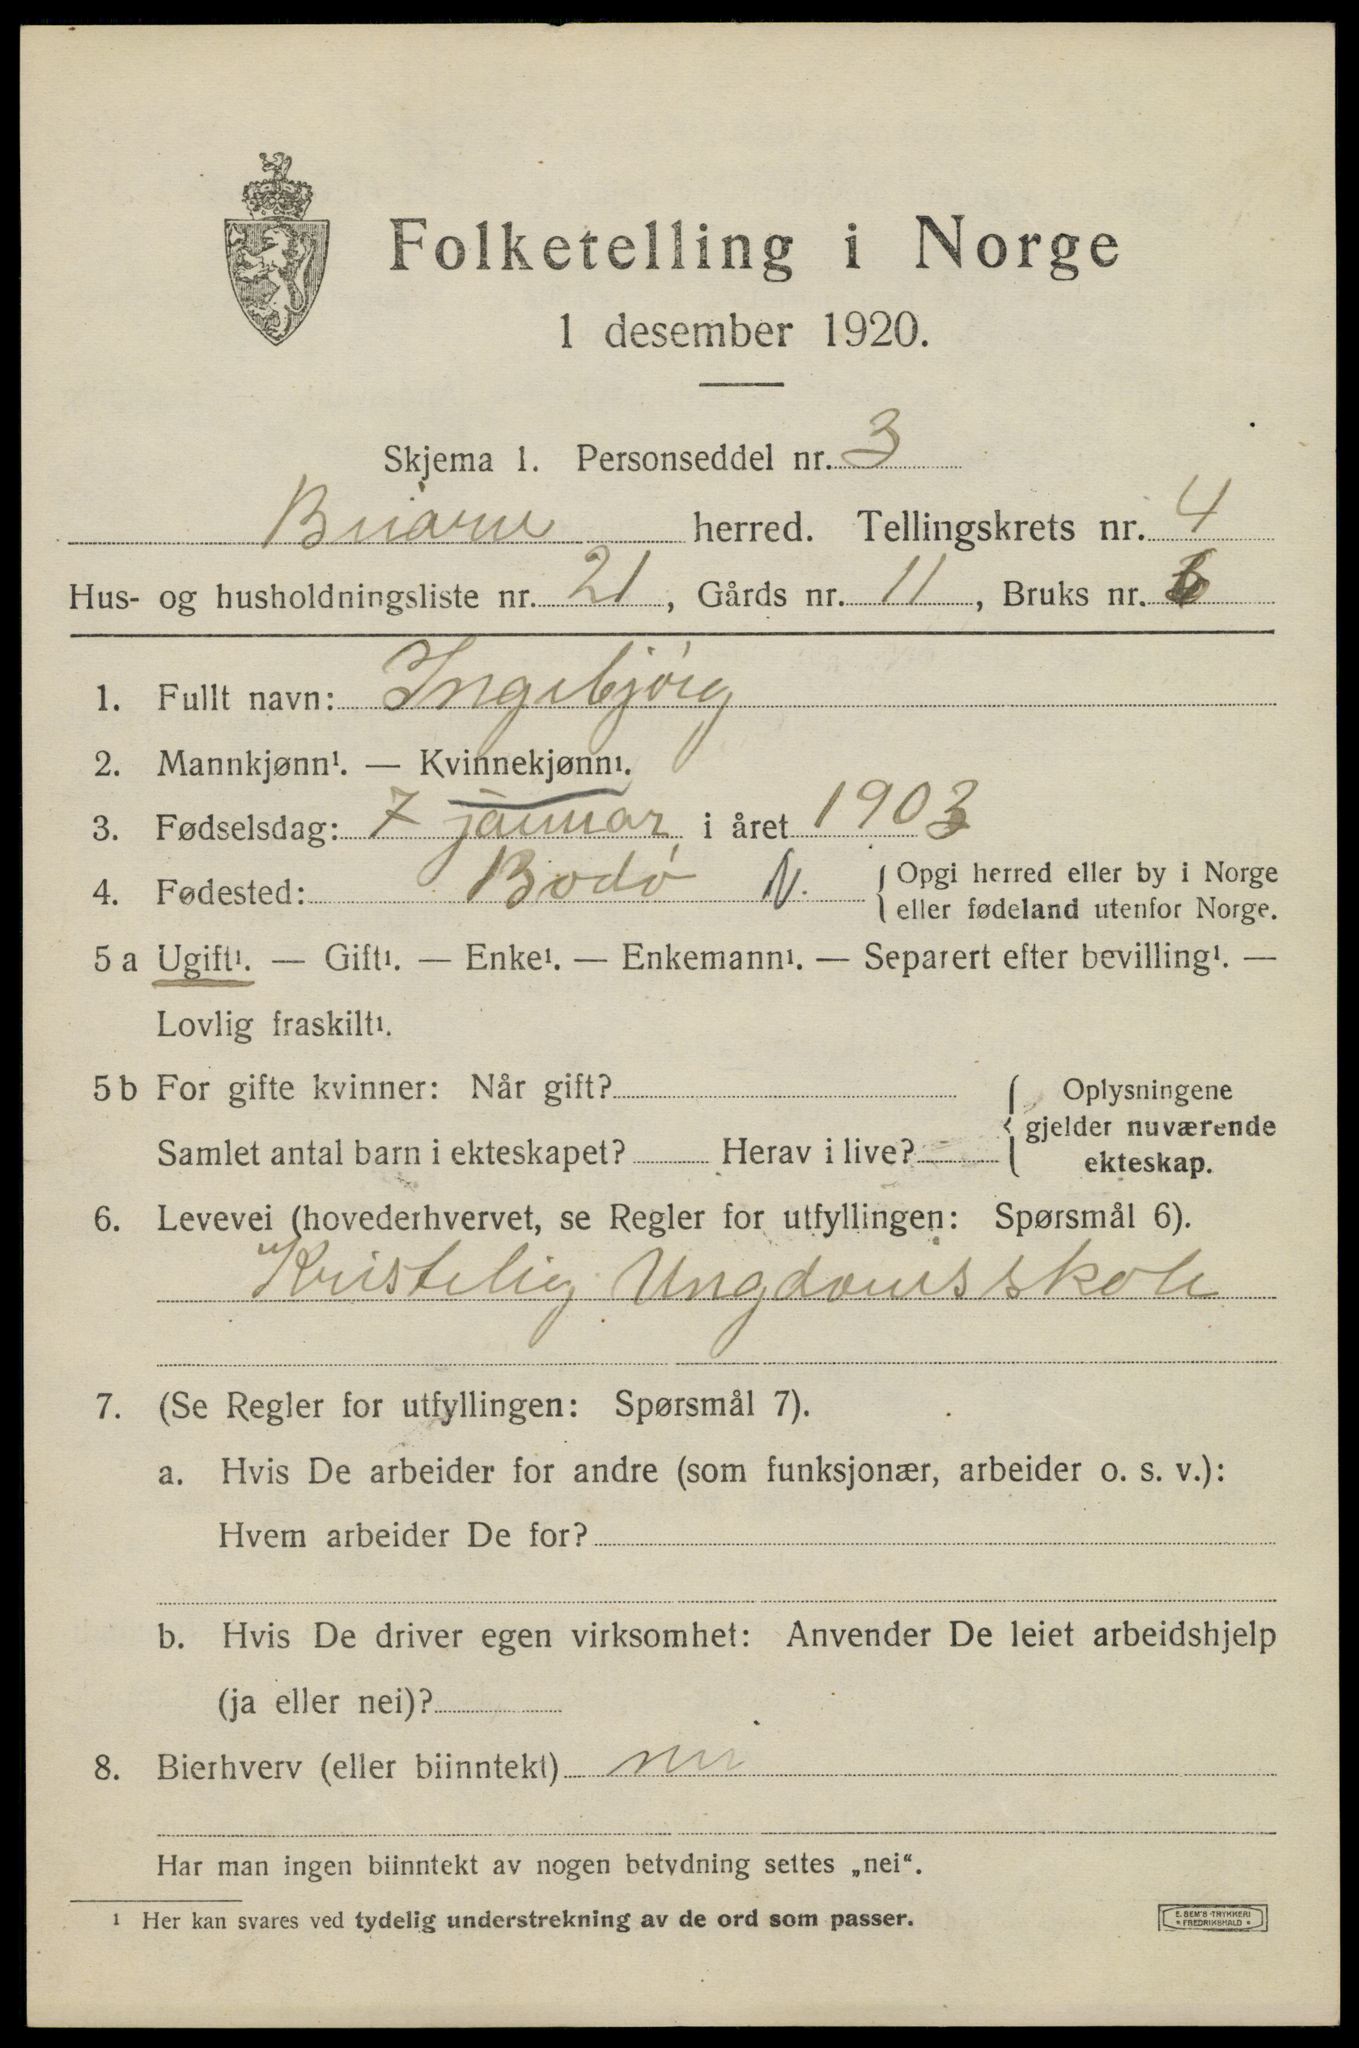 Folketelling i Norge
1 desember 1920.
Skjema 1. Personseddel nr. 3
Buarne herred. Tellingskrets nr. 4
Hus- og husholdningsliste nr. 21, Gårds nr. 11, Bruks nr.
1. Fullt navn: Ingebjörg
2. Mannkjønn¹. — Kvinnekjønn¹.
3. Fødselsdag: 7 januar i året 1903
4. Fødested: Bodö N. { Opgi herred eller by i Norge
eller fødeland utenfor Norge.
5 a Ugift¹. — Gift¹. — Enke¹. — Enkemann¹. — Separert efter bevilling¹. —
Lovlig fraskilt¹.
5 b For gifte kvinner: Når gift? { Oplysningene
gjelder nuværende
Samlet antal barn i ekteskapet? Herav i live? ekteskap.
6. Levevei (hovederhvervet, se Regler for utfyllingen: Spørsmål 6).
Kristelig Ungdomsskole
7. (Se Regler for utfyllingen: Spørsmål 7).
a. Hvis De arbeider for andre (som funksjonær, arbeider o. s. v.):
Hvem arbeider De for?
b. Hvis De driver egen virksomhet: Anvender De leiet arbeidshjelp
(ja eller nei)?
8. Bierhverv (eller biinntekt) nei
Har man ingen biinntekt av nogen betydning settes „nei“.
¹ Her kan svares ved tydelig understrekning av de ord som passer.
E. SEM'S TRYKKERI
* FREDRIKSHALD *